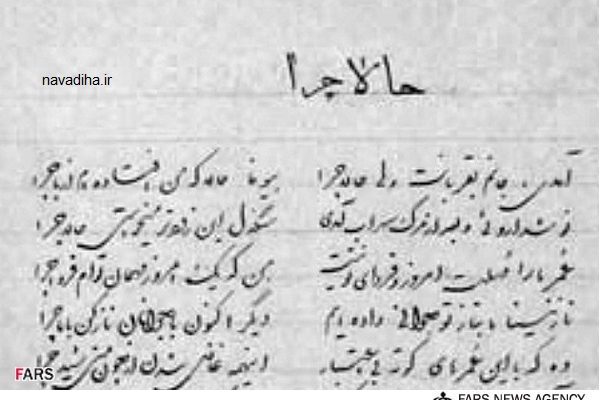 navadiha.ir
حالا چرا
آمدی، جانم بقربانت ولی حالا چرا بیوفا حالا که من افتاده‌ام از پا چرا
نوشداروئی و بعد از مرگ سهراب آمدی سنگدل این زودتر میخواستی حالا چرا
عمر ما را مهلت امروز و فردای تو نیست من که یک امروز مهمان توام فردا چرا
نازنینا ما بناز تو جوانی داده‌ایم دیگر اکنون با جوانان ناز کن با ما چرا
وه که با این عمرهای کوته بی اعتبار اینهمه غافل شدن از چون منی شیدا چرا
FARS
FARS NEWS AGENCY